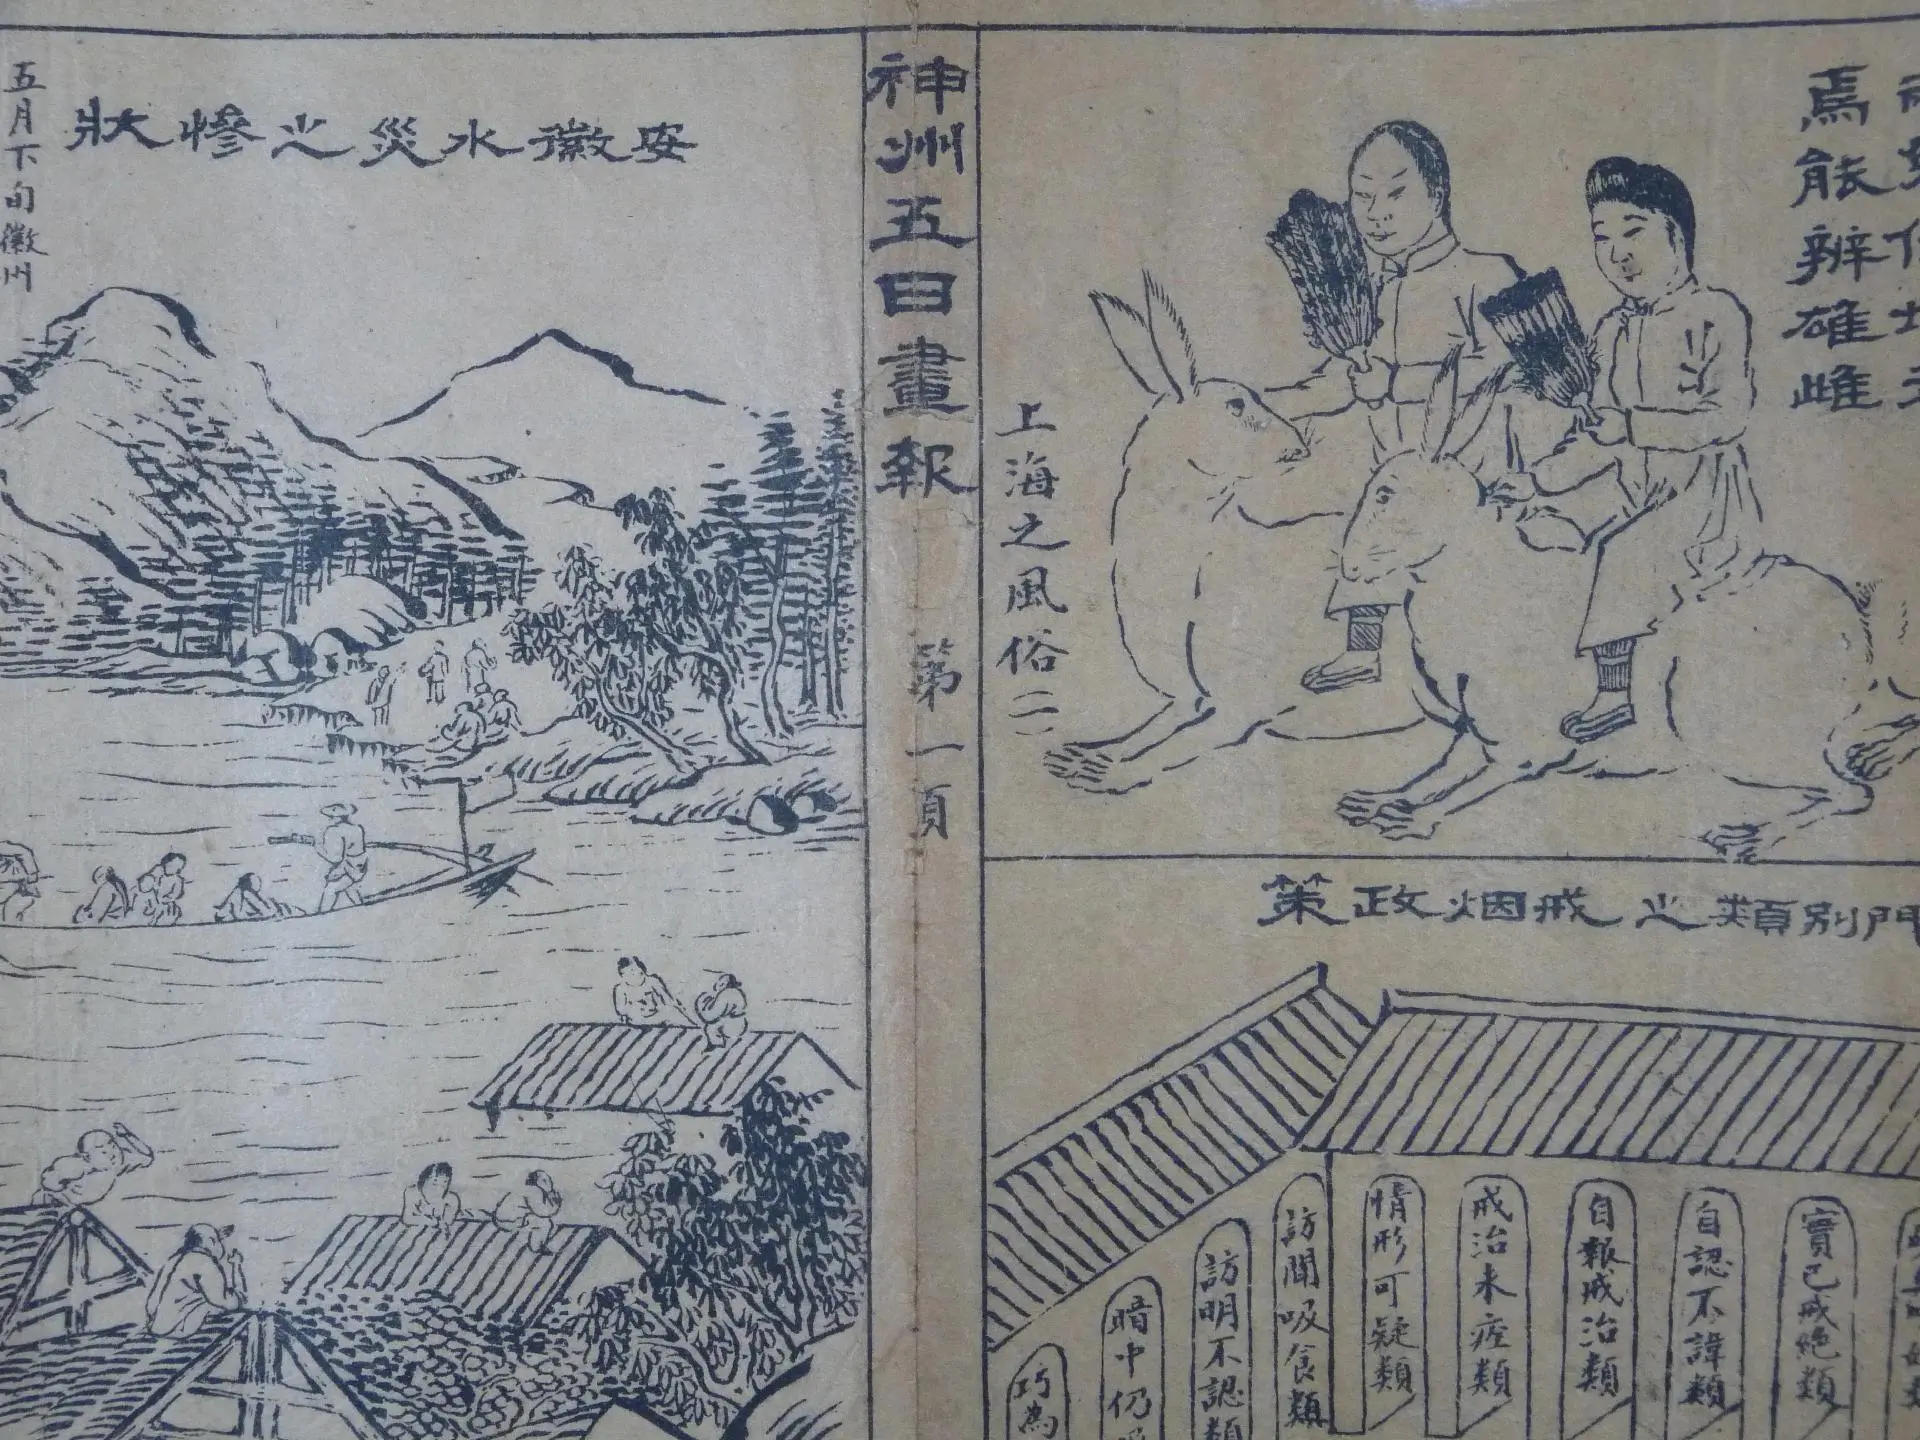 焉能辨雄雌
上海之風俗二
門別類之戒烟政策
實已戒絕類
自認不諱類
自報戒治類
戒治未痊類
情形可疑類
訪聞吸食類
訪明不認類
暗中仍
巧為
神州五日畫報
第一頁
安徽水災之慘狀
五月下旬徽州